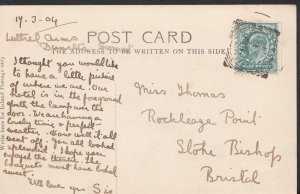 17.3.04
POST CARD
Luttrell Arms
Dunster
THE ADDRESS TO BE WRITTEN ON THIS SIDE
I thought you would like
to have a little picture
of where we are. Our
hotel is in the foreground
with the lamp over the
door. We are having a
lovely time & perfect
weather. How well it all
went off. You all looked
splendid. I hope you
enjoyed the theatre. The
bouquets must have looked
sweet.
With love yrs Sis
Miss Thomas
Rockleage Point
Stoke Bishop
Bristol